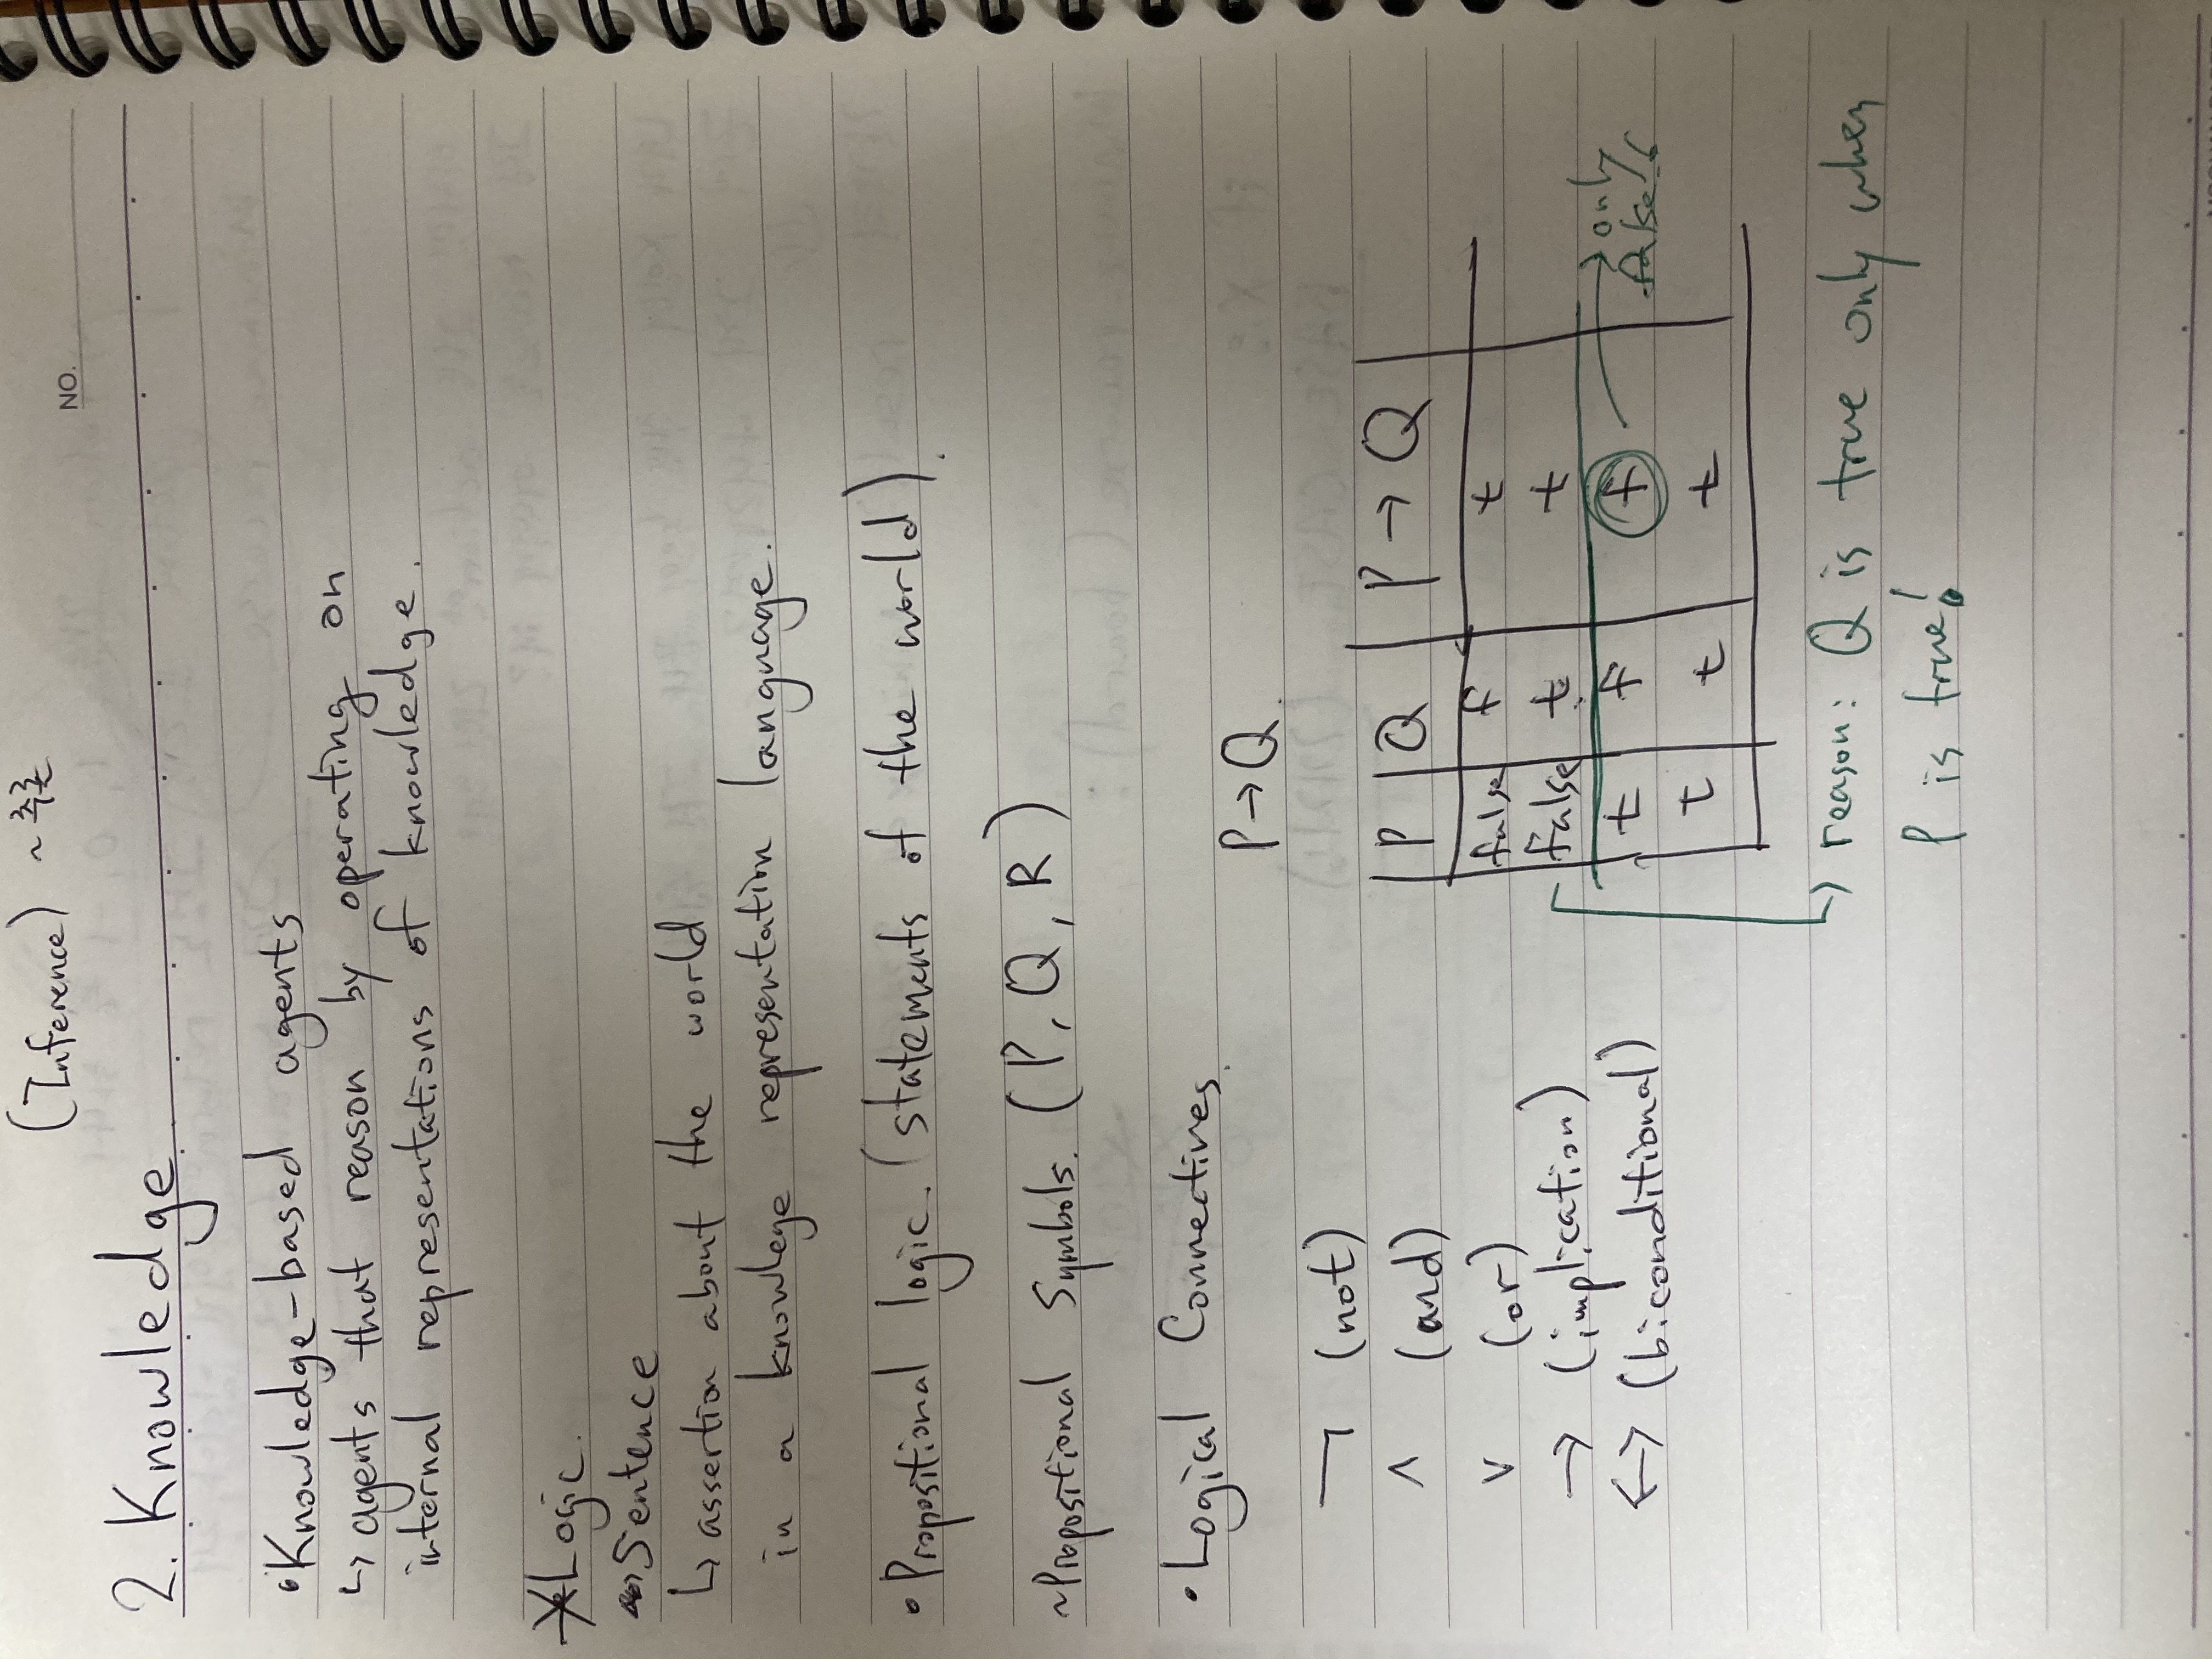 (Inference) ~ 추론
NO.
2. Knowledge
•Knowledge-based agents
↳ agents that reason by operating on
internal representations of knowledge.
Logic.
Sentence
↳ assertion about the world
in a knowlege representation language.
•Propositional logic. (statements of the world).
~Propositional Symbols. (P, Q, R)
•Logical Connectives.
P→Q.
¬ (not)
∧ (and)
∨ (or)
→ (implication)
↔ (biconditional)
P Q P → Q
false f t
false t t
t f f → only
false
t t t
↳ reason: Q is true only when
P is true!